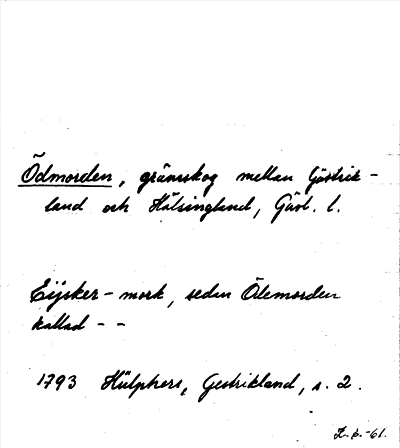 Ödmorden, gränsskog mellan Gästrik-
land och Hälsingland, Gävl. l.
Eijsker-mork, sedan Ödemorden
kallad - -
1793 Hülphers, Gestrikland, s. 2.
-61.